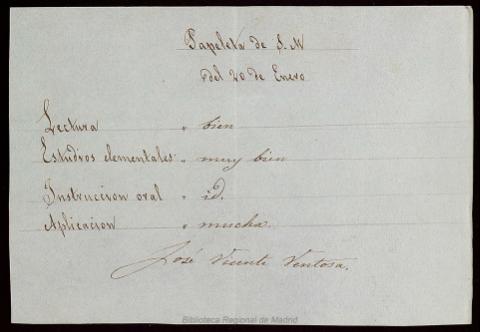 Papeleta de S. M
del 20 de Enero
Lectura " bien
Estudios elementales " muy bien
Instruccion oral " id.
Aplicacion " mucha.
José Vicente Ventosa.
Biblioteca Regional de Madrid